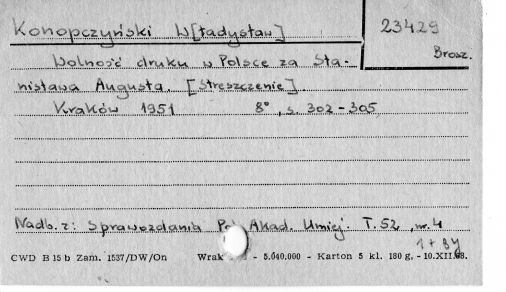 Konopczyński W[ładysław]
23429
Brosz.
Wolność druku w Polsce za Sta-
nisława Augusta. [Streszczenie]
Kraków 1951 8°, s. 302-305
Nadb. z: Sprawozdania Akad. Umiej. T. 52, nr. 4
1 + BJ
CWD B 15 b Zam. 1537/DW/On - 5.040,000 - Karton 5 kl. 180 g, - 10.XII.